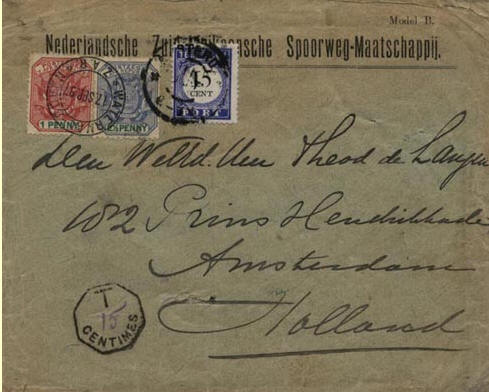 Model B.
Nederlandsche Zuid-Afrikaansche Spoorweg-Maatschappij.
1 PENNY
PENNY
15
CENT
PORT
Den Weled. Heer Theod de Lange
102 Prins Hendrikkade
Amsterdam
Holland
T
15
CENTIMES